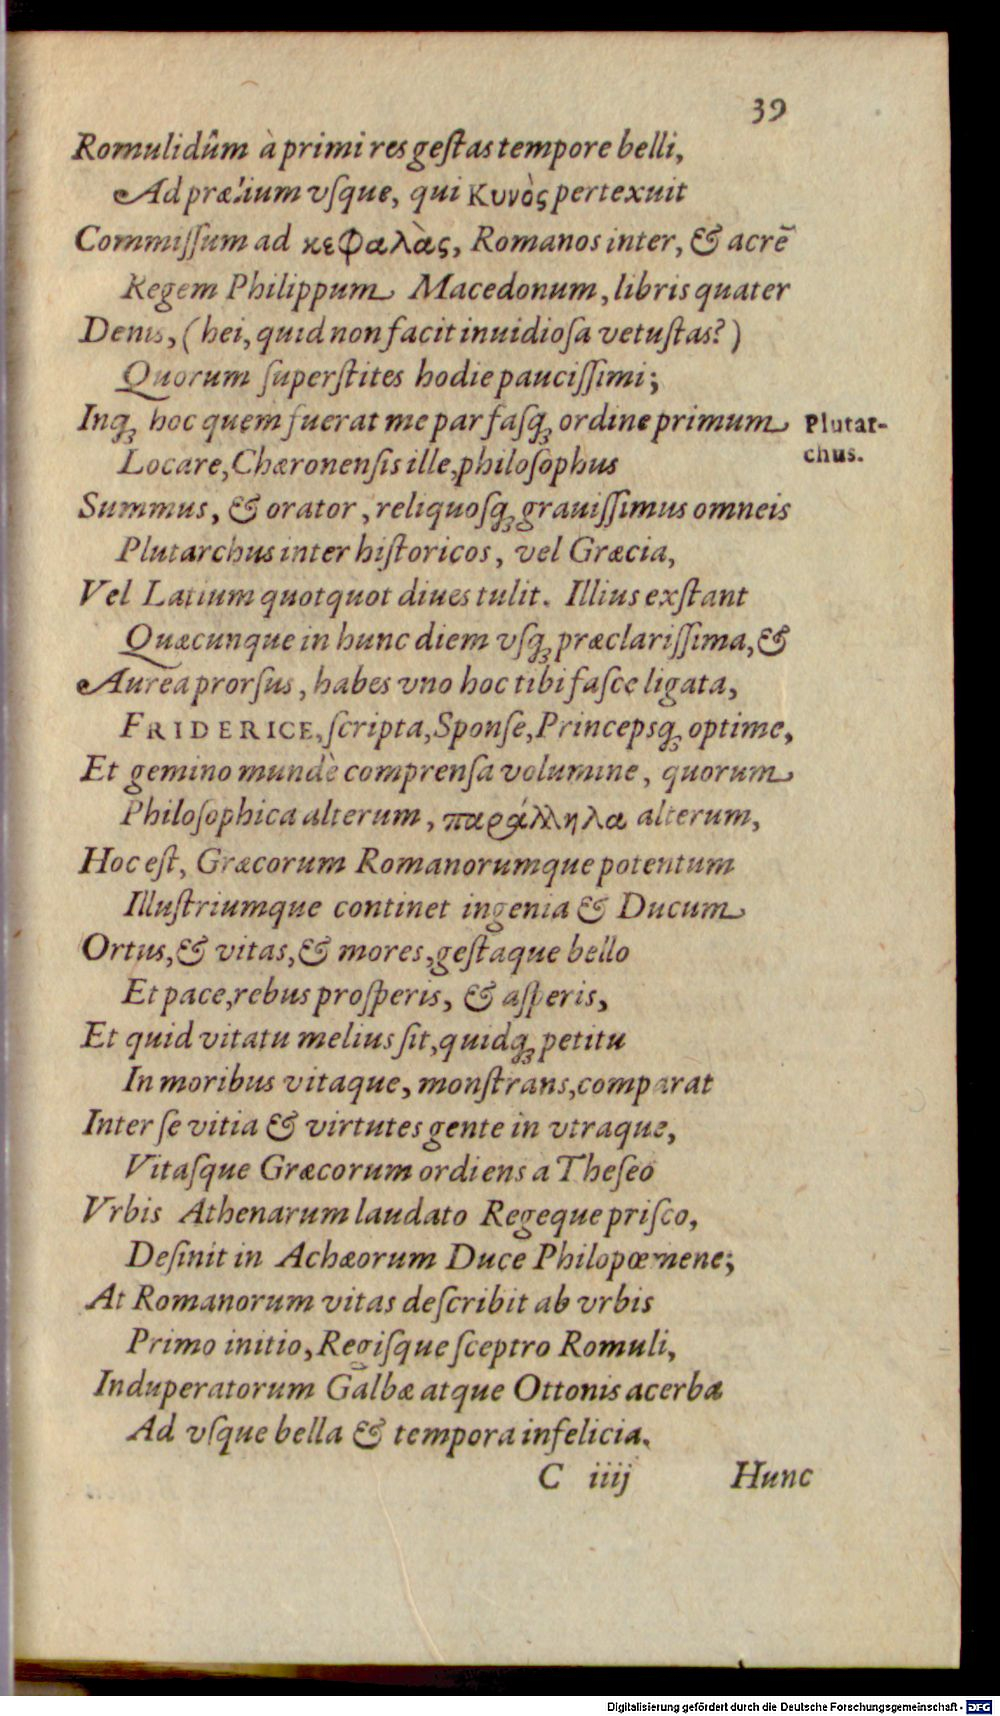 39
Romulidûm à primi res geſtas tempore belli,
Ad prælium vſque, qui Κυνὸς pertexuit
Commiſſum ad κεφαλὰς, Romanos inter, & acrē
Regem Philippum Macedonum, libris quater
Denis, (hei, quid non facit inuidioſa vetuſtas?)
Quorum ſuperſtites hodie pauciſſimi;
Inq́; hoc quem fuerat me par faſq́; ordine primum
Plutar-
chus.
Locare, Chæronenſis ille, philoſophus
Summus, & orator, reliquoſq́; grauiſſimus omneis
Plutarchus inter hiſtoricos, vel Græcia,
Vel Latium quotquot diues tulit. Illius exſtant
Quæcunque in hunc diem vſq́; præclariſſima, &
Aurea prorſus, habes vno hoc tibi faſce ligata,
FRIDERICE, ſcripta, Sponſe, Princepsq́; optime,
Et gemino mundè comprenſa volumine, quorum
Philoſophica alterum, παράλληλα alterum,
Hoc eſt, Græcorum Romanorumque potentum
Illuſtriumque continet ingenia & Ducum
Ortus, & vitas, & mores, geſtaque bello
Et pace, rebus proſperis, & aſperis,
Et quid vitatu melius ſit, quidq́; petitu
In moribus vitaque, monſtrans, comparat
Inter ſe vitia & virtutes gente in vtraque,
Vitaſque Græcorum ordiens a Theſeo
Vrbis Athenarum laudato Regeque priſco,
Deſinit in Achæorum Duce Philopœmene;
At Romanorum vitas deſcribit ab vrbis
Primo initio, Regiſque ſceptro Romuli,
Induperatorum Galbæ atque Ottonis acerba
Ad vſque bella & tempora infelicia.
C iiij Hunc
Digitalisierung gefördert durch die Deutsche Forschungsgemeinschaft - DFG